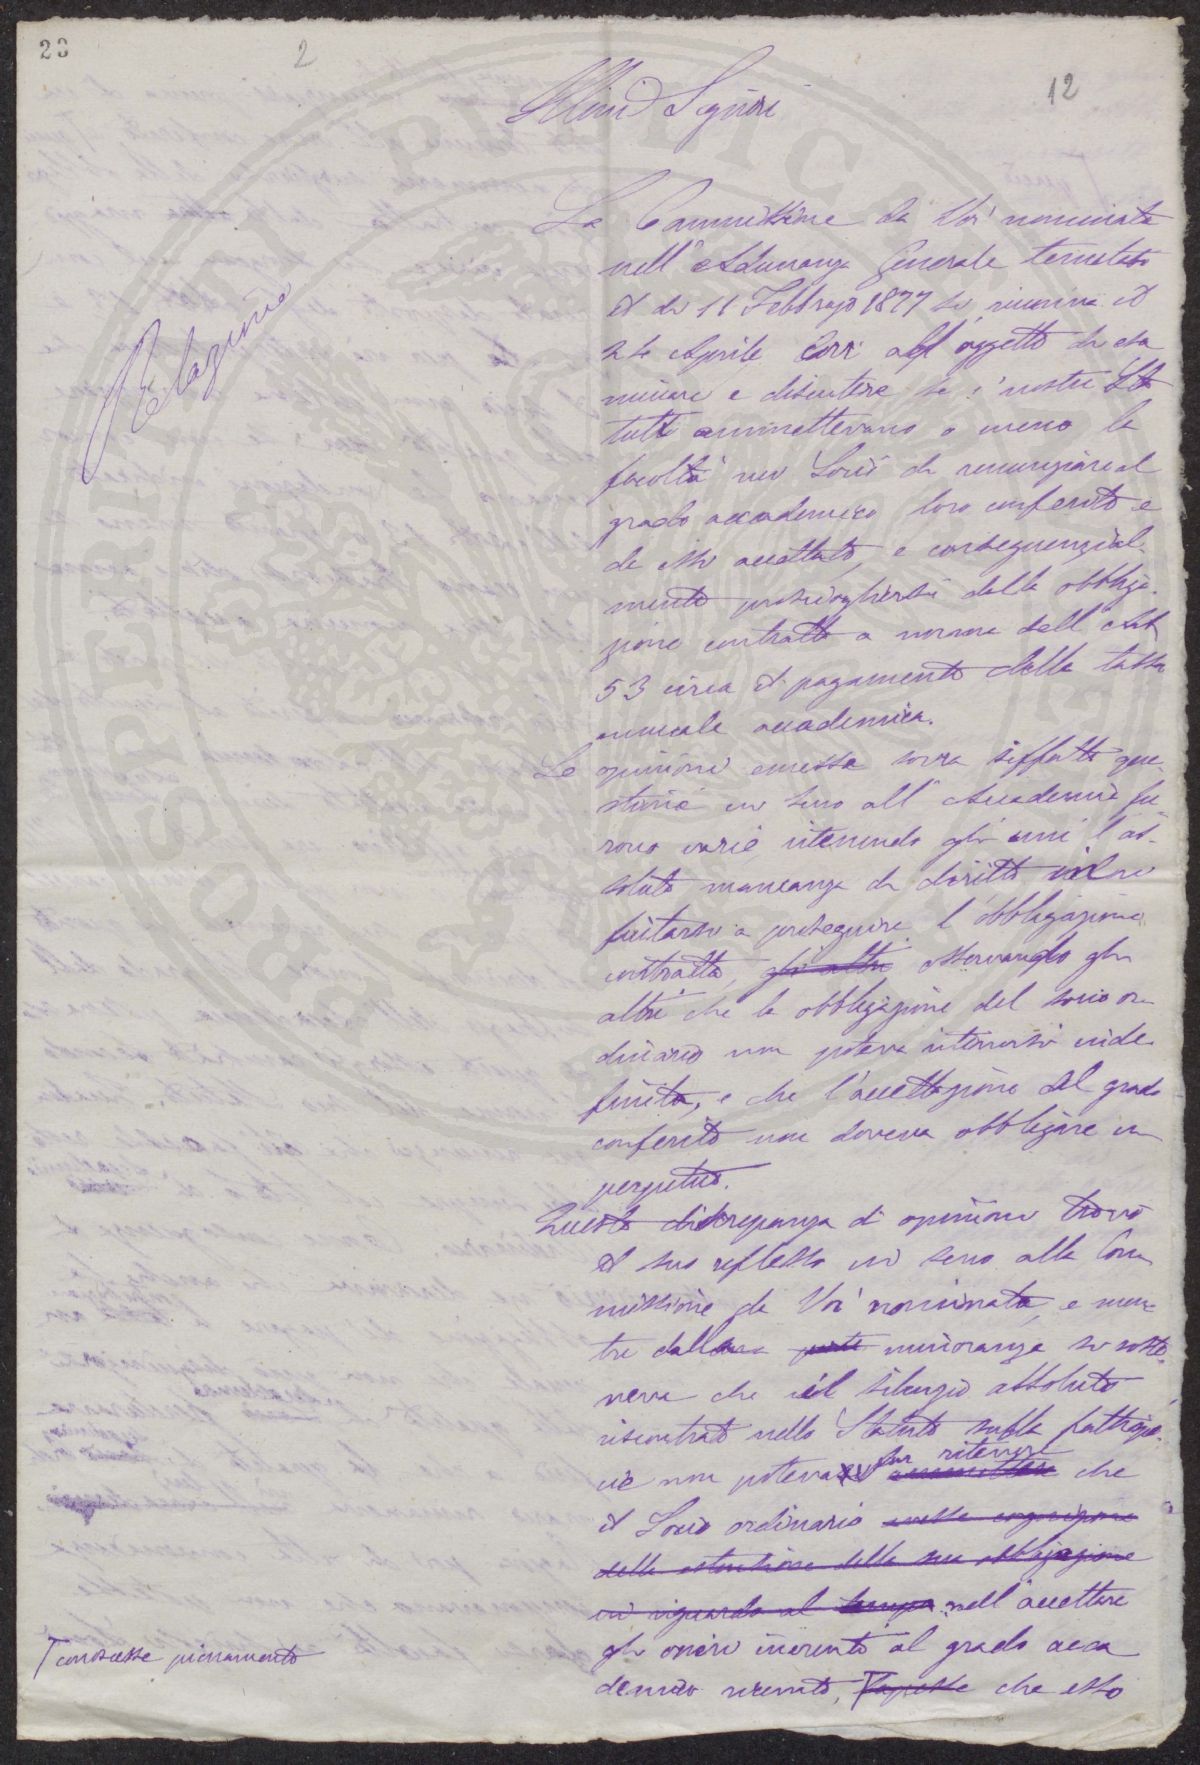 23
2
12
Ill.mi Signori
Relazione
La Commissione da Voi nominata
nell'Adunanza Generale tenutasi
il dì 11 Febbrajo 1877 si riuniva il
24 Aprile Corr all'oggetto di esa
minare e discutere se i nostri Sta
tuti ammettevano o meno la
facoltà nei Socii di renunziare al
grado accademico loro conferito e
da essi accettato, e consequenzial-
mente prosciogliersi dalla obbliga-
zione contratta a norma dell'Art
53 circa il pagamento della tassa
annuale accademica.
Le opinioni emesse sovra siffatta que-
stione in seno all'Accademia fu-
rono varie, ritenendo gli uni l'as-
soluta mancanza di diritto nel ri
fiutarsi a proseguire l'obbligazione
contratta, gli altri osservando gli
altri che la obbligazione del socio or-
dinario non poteva ritenersi inde-
finita, e che l'accettazione del grado
conferito non doveva obbligare in
perpetuo.
Questa discrepanza di opinioni trovò
il suo reflesso in seno alla Com
missione da Voi nominata, e men-
tre dalla parte minoranza si soste-
neva che il silenzio assoluto
riscontrato nello Statuto sulla fattispe-
cie non poteva far ritenere
ammettere che
il Socio ordinario avesse cognizione
della estensione della sua obbligazione
in riguardo al tempo nell'accettare
gli oneri inerenti al grado acca
demico ricevuto, sapesse che esso
conoscesse pienamente